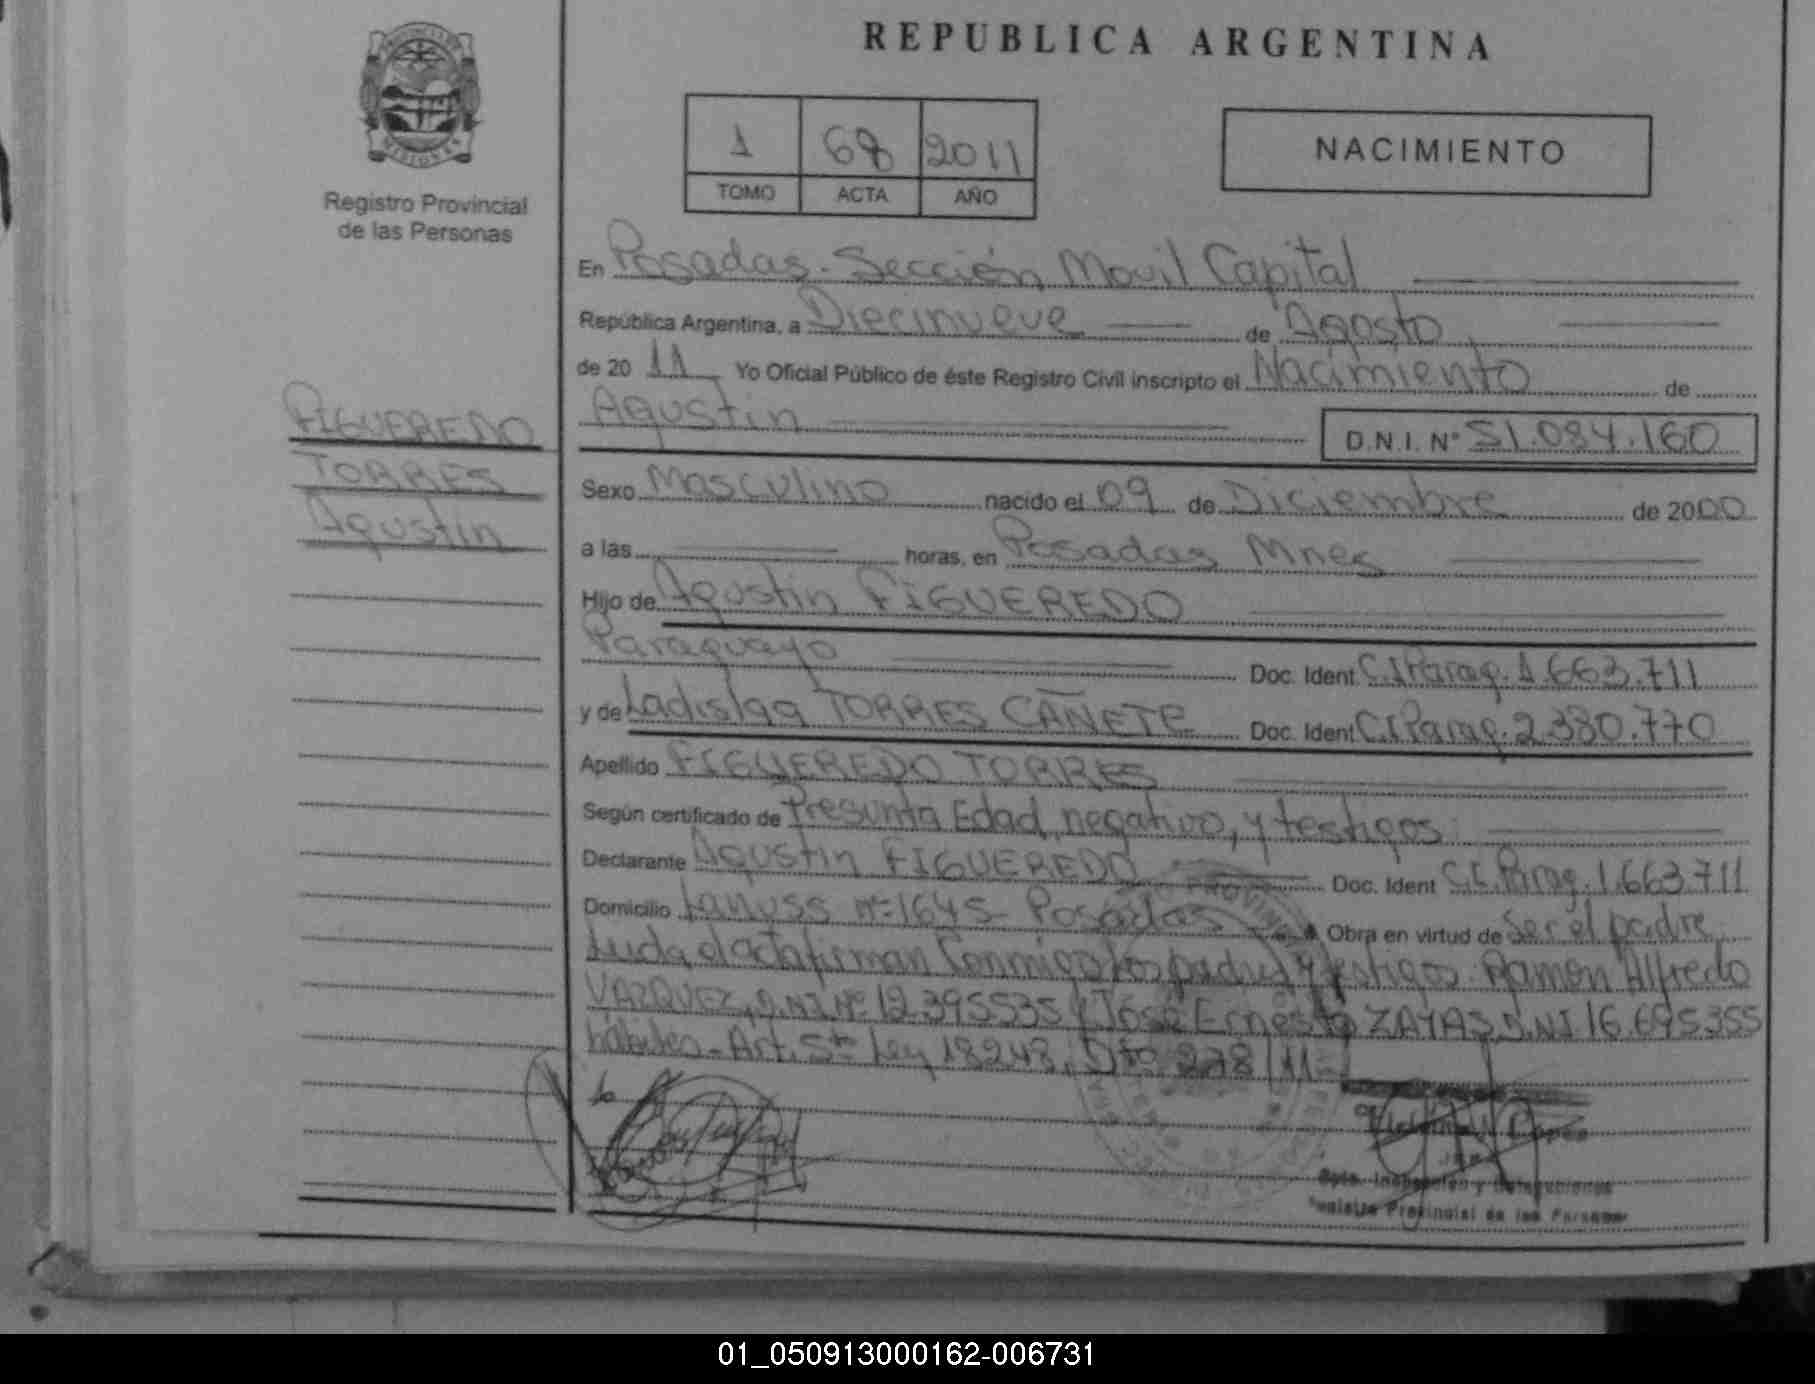 PROVINCIA DE
MISIONES
Registro Provincial
de las Personas
FIGUEREDO
TORRES
Agustin
REPUBLICA ARGENTINA
1 68 2011
TOMO ACTA AÑO
NACIMIENTO
En Posadas - Sección Movil Capital
República Argentina, a Diecinueve de Agosto
de 20 11 Yo Oficial Público de éste Registro Civil inscripto el Nacimiento de
Agustin D.N.I. N° 51.084.160
Sexo Masculino nacido el 09 de Diciembre de 2000
a las horas, en Posadas Mnes
Hijo de Agustin FIGUEREDO
Paraguayo Doc. Ident C.I Parag. 1.663.711
y de Ladislaa TORRES CAÑETE Doc. Ident C.I Parag. 2.330.770
Apellido FIGUEREDO TORRES
Según certificado de Presunta Edad, negativo, y testigos
Declarante Agustin FIGUEREDO Doc. Ident C.I. Parag. 1.663.711
Domicilio Lanuss n° 1645 - Posadas Obra en virtud de ser el padre
Leida el acta firman Conmigo los padres y testigos Ramon Alfredo
VAZQUEZ, D.N.I N° 12.395535 y Jose Ernesto ZAYAS D.NI 16.695.355
habiles - Art. 5to Ley 18248, Dto 278/11
Registro Provincial de las Personas
01_050913000162-006731